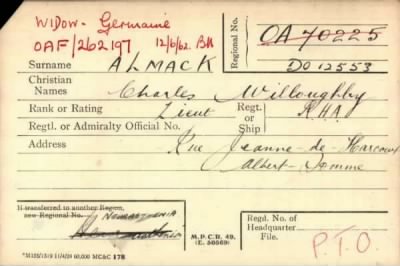 WIDOW - Germaine
OAF/262197 12/6/62. BH
Regional No. OA 70225
DO 12553
Surname ALMACK
Christian Names Charles Willoughby
Rank or Rating Lieut Regt. or Ship RHA
Regtl. or Admiralty Official No.
Address Rue Jeanne-de-Harcourt
Albert-Somme
If transferred to another Region, new Regional No.
M.P.C.R. 49.
(E. 56569)
Regd. No. of Headquarter File.
P.T.O.
MC&C 178